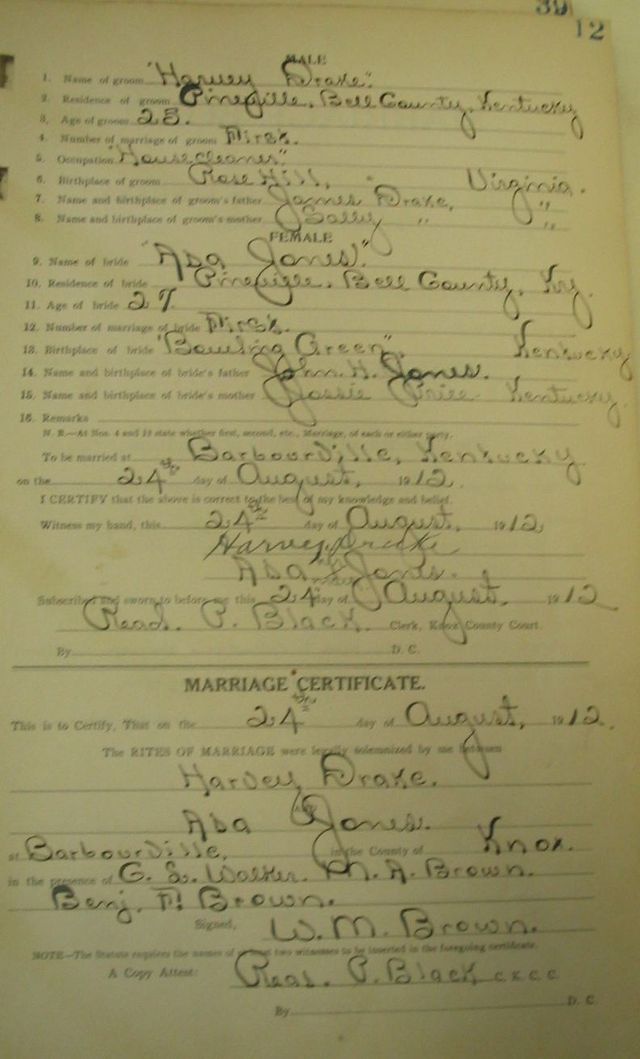 39
12
MALE
1. Name of groom "Harvey Drake".
2. Residence of groom Pineville, Bell County, Kentucky
3. Age of groom 28.
4. Number of marriage of groom First.
5. Occupation "Housecleaner"
6. Birthplace of groom Rose Hill, Virginia.
7. Name and birthplace of groom's father James Drake, "
8. Name and birthplace of groom's mother Sally " "
FEMALE
9. Name of bride "Asa Jones."
10. Residence of bride Pineville, Bell County, Ky.
11. Age of bride 27
12. Number of marriage of bride First.
13. Birthplace of bride "Bowling Green", Kentucky
14. Name and birthplace of bride's father John H. Jones.
15. Name and birthplace of bride's mother Jossie Price Kentucky.
16. Remarks
N. B.—At Nos. 4 and 12 state whether first, second, etc., Marriage, of each or either party.
To be married at Barbourville, Kentucky
on the 24th day of August, 1912.
I CERTIFY that the above is correct to the best of my knowledge and belief.
Witness my hand, this 24th day of August, 1912
Harvey Drake
Asa Jones.
Subscribed and sworn to before me this 24 day of August, 1912
Read. P. Black. Clerk, Knox County Court.
By D. C.
MARRIAGE CERTIFICATE.
This is to Certify, That on the 24th day of August, 1912.
The RITES OF MARRIAGE were legally solemnized by me between
Harvey Drake.
and
Asa Jones.
at Barbourville, in the County of Knox.
in the presence of G. L. Walker. M. A. Brown.
Benj. F. Brown.
Signed, W. M. Brown.
NOTE—The Statute requires the names of at least two witnesses to be inserted in the foregoing certificate.
A Copy Attest: Read. P. Black C.K.C.C.
By D. C.